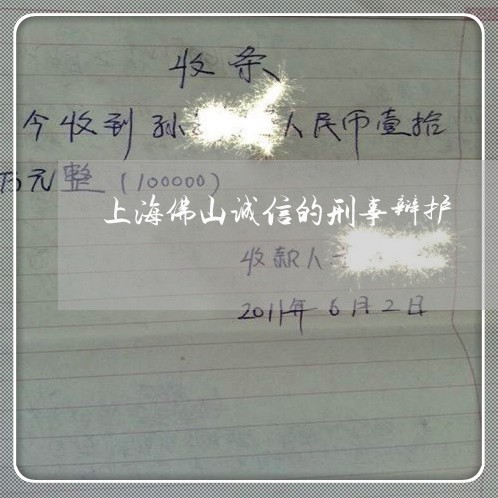 收条
今收到孙 人民币壹拾
万元整(100000)
上海佛山诚信的刑事辩护
收款人
2011年6月2日